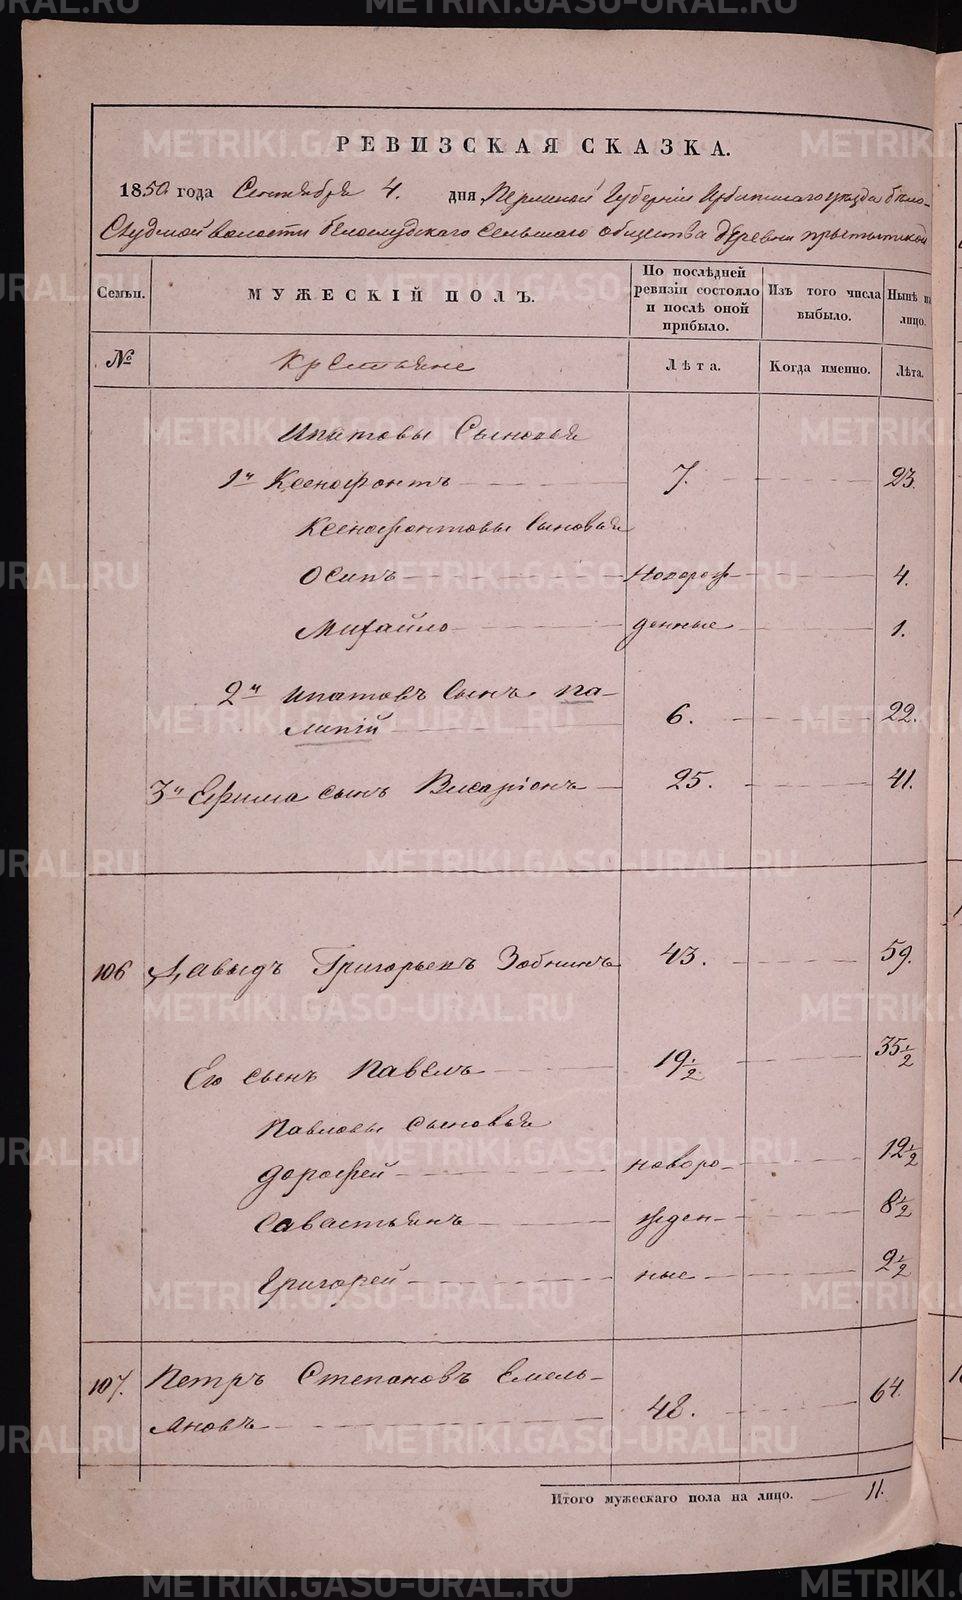 METRIKI.GASO-URAL.RU
РЕВИЗСКАЯ СКАЗКА.
1850 года Сентября 4. дня, Пермской Губернiи Ирбитскаго уезда бело-
Слудской волости белослудскаго Сельскаго общества деревни
Семьи.
МУЖЕСКIЙ ПОЛЪ.
По послѣдней ревизiи состояло и послѣ оной прибыло.
Изъ того числа выбыло.
Нынѣ на лицо.
№
Крестьяне
Лѣта.
Когда именно.
Лѣта.
Ипатовы Сыновья
1й Ксенофонтъ 7. 23.
Ксенофонтовы Сыновья
Осипъ новорож- 4.
Михайло денные 1.
2й Ипатовъ Сынъ Па-
литiй 6. 22.
3й Ефима сынъ Висарiонъ 25. 41.
106 Давыдъ Григорьевъ Зобнинъ 43. 59.
Его сынъ Павелъ 19 1/2 35 1/2
Павловы сыновья
Дорофей новоро- 12 1/2
Савастьянъ жден- 8 1/2
Григорей ные 2 1/2
107. Петръ Степановъ Емель-
яновъ 48. 64.
Итого мужескаго пола на лицо. 11.